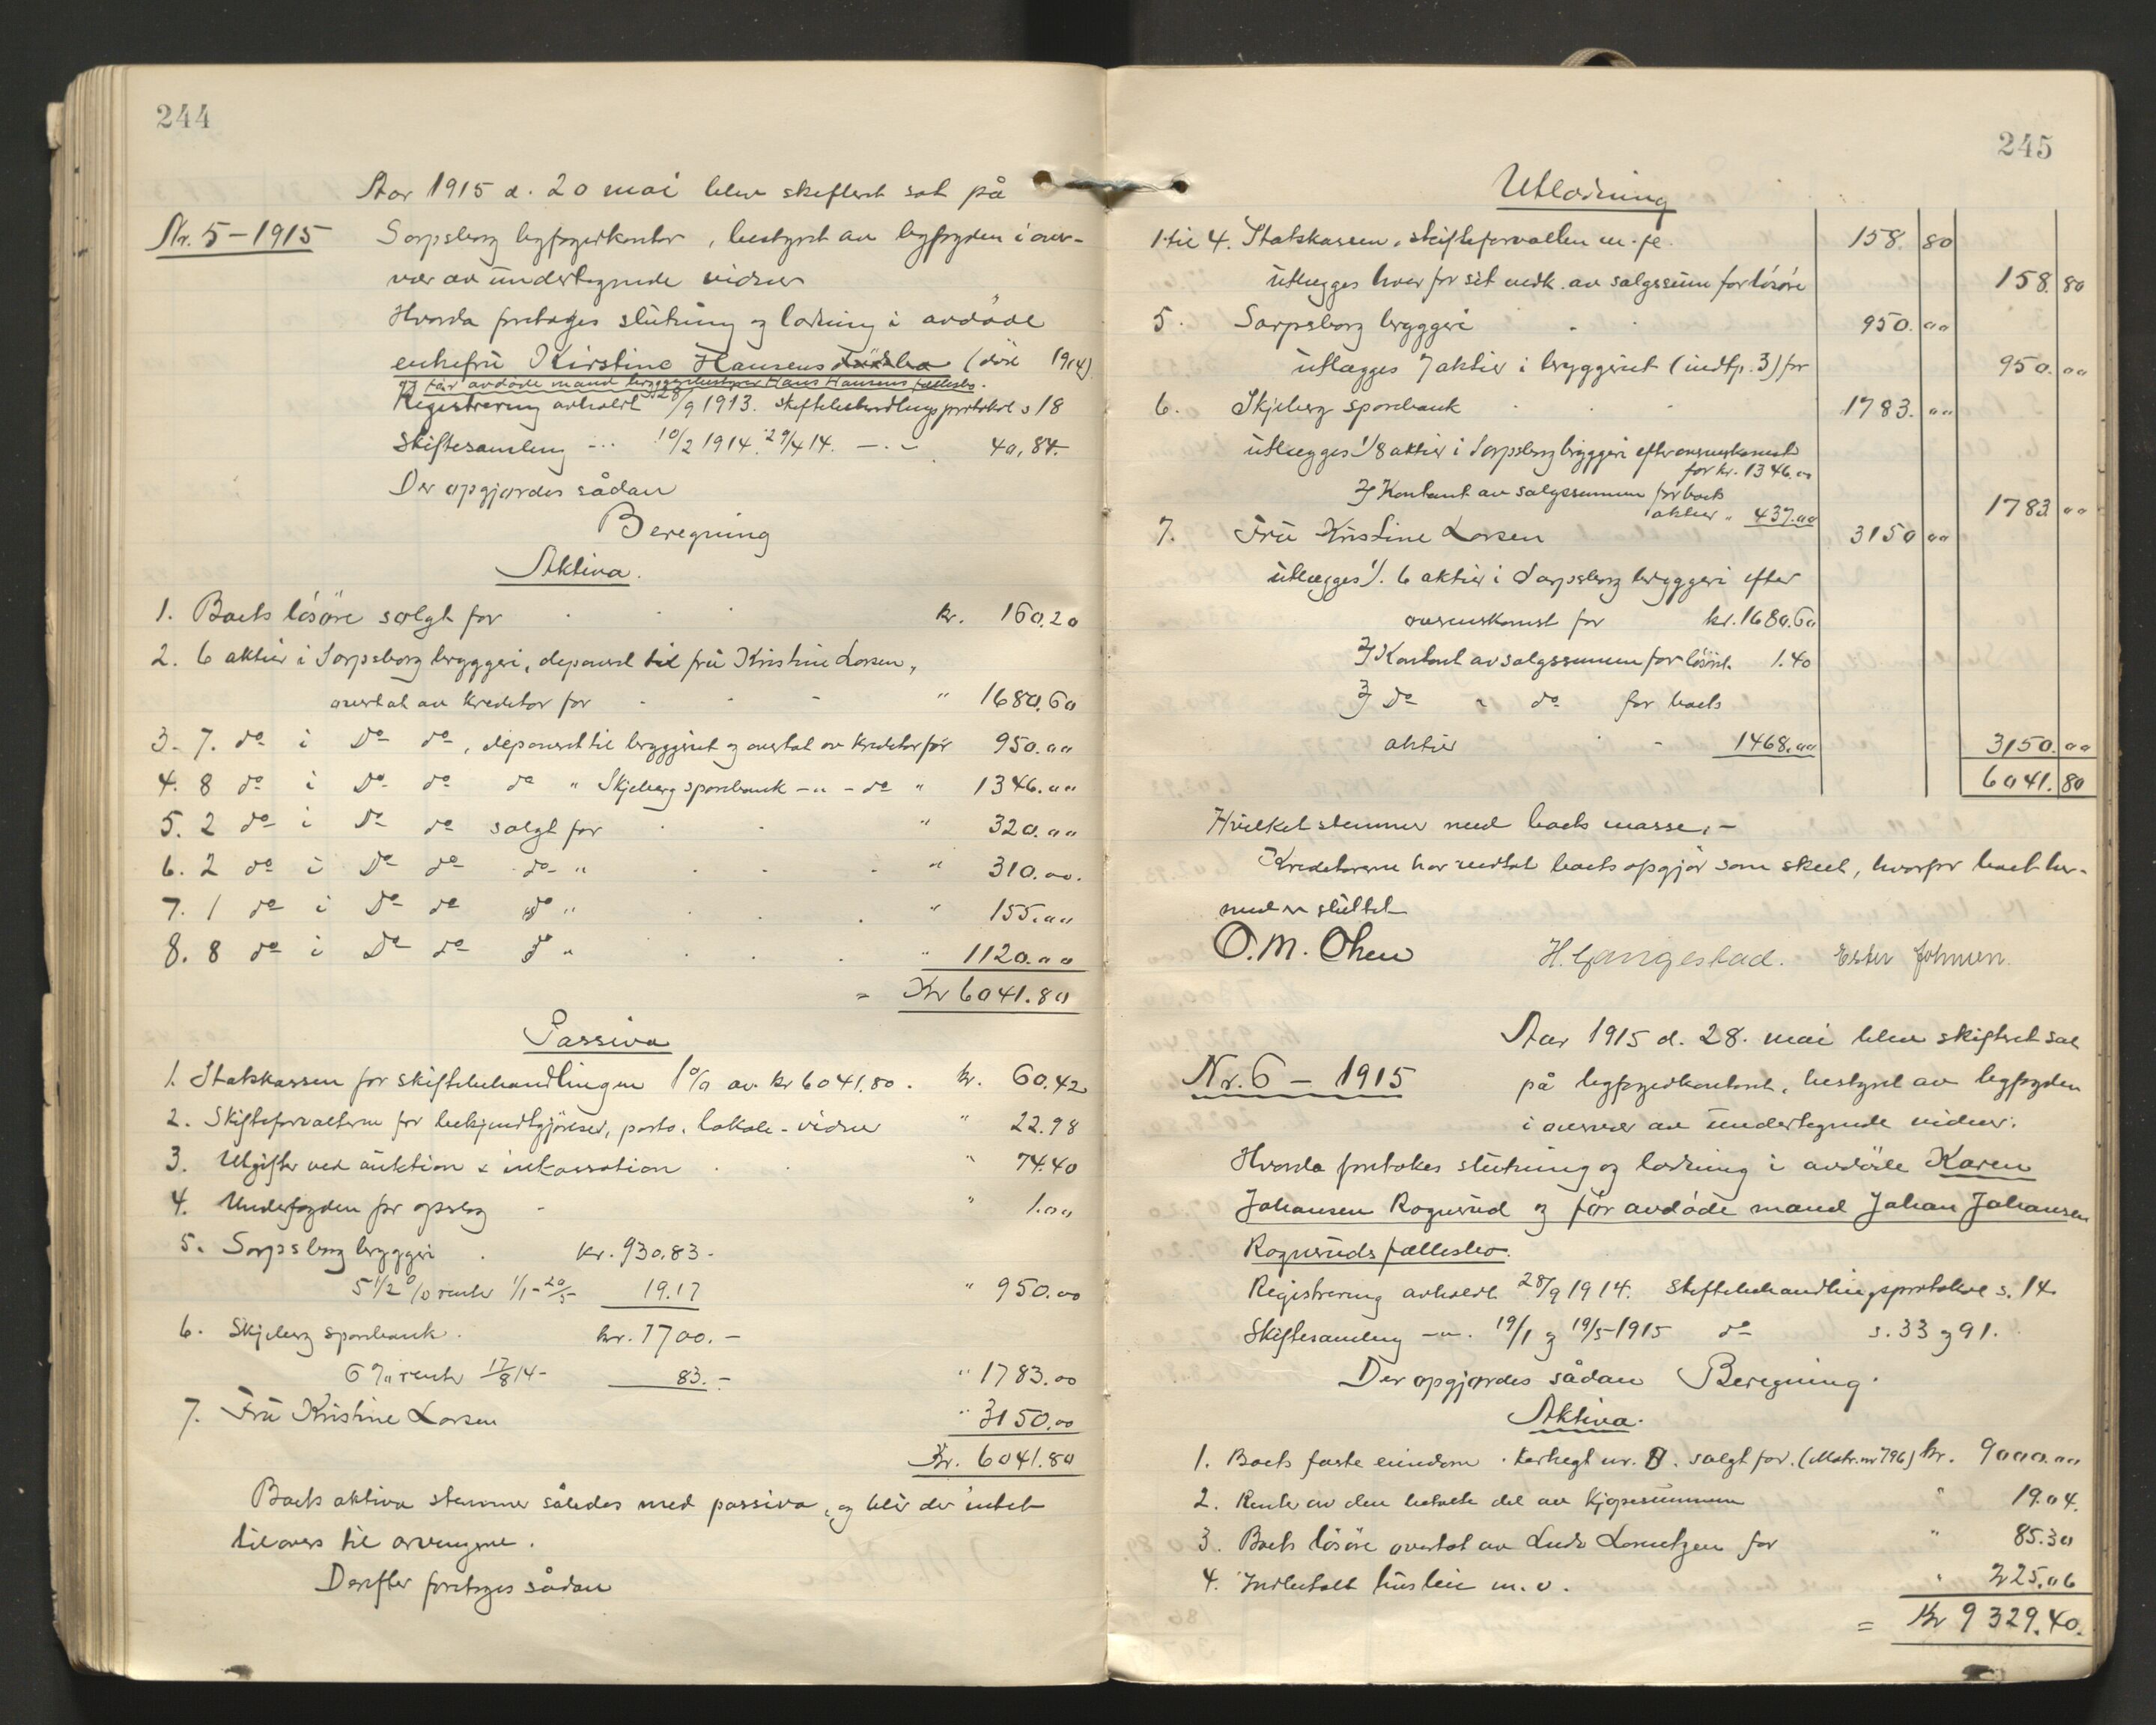 244
Aar 1915 d. 20 mai blev skifteret sat på
Nr. 5 - 1915 Sarpsborg byfogedkontor, bestyret av byfogden i over-
vær av undertegnede vidner
Hvorda foretoges slutning og lodning i avdøde
enkefru Kirstine Hansens (død 1914)
og før avdøde mand bryggeribestyrer Hans Hansens fællesbo.
Registrering avholdt 28/9 1913. Skiftebehandlingsprotokol s 18
Skiftesamling -.. 10/2 1914. 29/4 14. -.- 40, 84.
Der opgjordes sådan
Beregning
Aktiva.
1. Boets løsøre solgt for kr. 160.20
2. 6 aktier i Sarpsborg bryggeri, deponert til fru Kristine Larsen,
overtat av kreditor for " 1680.60
3. 7. do i Do do, deponert til bryggeriet og overtat av kreditor for 950.00
4. 8 do i Do do do " Skjeberg sparebank -"- do " 1346.00
5. 2 do i Do do solgt for " 320.00
6. 2 do i Do do do " " 310.00.
7. 1 do i Do do do " " 155.00
8. 8 do i Do do do " " 1120.00
= Kr 6041.80
Passiva
1. Statskassen for skiftebehandlingen 1 % av kr 6041.80. kr. 60.42
2. Skifteforvalteren for bekjendtgjørelser, porto, lokale - vidner " 22.98
3. Utgifter ved auktion & inkassation " 74.40
4. Underfogden for opslag " 1.00
5. Sarpsborg bryggeri kr. 930.83.
5 1/2 % renter 1/1 - 20/5 19.17 " 950.00
6. Skjeberg sparebank. kr. 1700.-
6 % rente 17/8 14- 83.- " 1783.00
7. Fru Kristine Larsen " 3150.00
Kr. 6041.80
Boets aktiva stemmer således med passiva, og blir der intet
tilovers til arvingerne.
Derefter foretoges sådan
245
Utlodning
1 til 4. Statskassen, skifteforvalteren m. fl. 158. 80
utlægges hver for sit vedk. av salgssum for løsøre 158. 80
5. Sarpsborg bryggeri 950. 00
utlægges 7 aktier i bryggeriet (indtp. 3) for 950. 00
6. Skjeberg sparebank 1783. 00
utlægges 1/ 8 aktier i Sarpsborg bryggeri efter overenskomst
for kr. 1346.00
2/ Kontant av salgssummen for boets
aktier " 437.00 1783 00
7. Fru Kristine Larsen 3150 00
utlægges 1/. 6 aktier i Sarpsborg bryggeri efter
overenskomst for kr. 1680.60
2/ Kontant av salgssummen for løsøret 1.40
3/ Do " do for boets
aktier 1468.00 3150. 00
6041. 80
Hvilket stemmer med boets masse. -
Kreditorerne har vedtat boets opgjør som skeet, hvorfor boet her-
med er sluttet
O. M. Ohen H. Gangestad. Ester Johnsen.
Aar 1915 d. 28. mai blev skifteret sat
Nr. 6 - 1915 på byfogedkontoret, bestyret av byfogden
i overvær av undertegnede vidner:
Hvorda foretokes slutning og lodning i avdøde Karen
Johansen Rognerud og før avdøde mand Johan Johansen
Rogneruds fællesbo.
Registrering avholdt 28/9 1914. Skiftebehandlingsprotokol s. 14
Skiftesamling -"-. 19/1 og 19/5-1915 do s. 33 og 91.
Der opgjordes sådan Beregning.
Aktiva.
1. Boets faste eiendom solgt for. (Matr. nr 796) kr. 9000.00
2. Rente av den betalte del av kjøpesummen " 19.04.
3. Boets løsøre overtat av Ludv Lorentzen for " 85.30
4. Indbetalt husleie m. v. " 225.06
= Kr 9329.40.